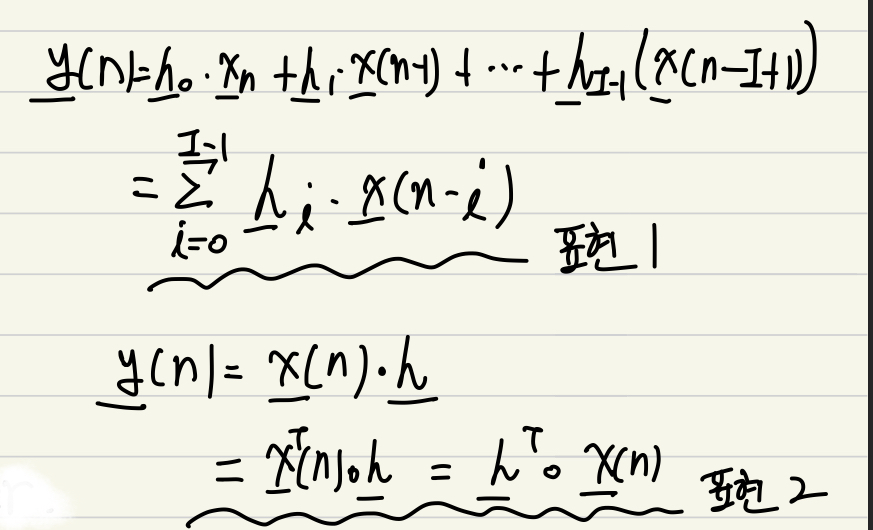 y(n)=h₀·xₙ+h₁·x(n-1)+⋯+h_{I-1}(x(n-I+1))
=∑_{i=0}^{I-1} h_i·x(n-i) 표현 1
y(n)=x(n)·h
=x^T(n)∘h = h^T∘x(n) 표현 2